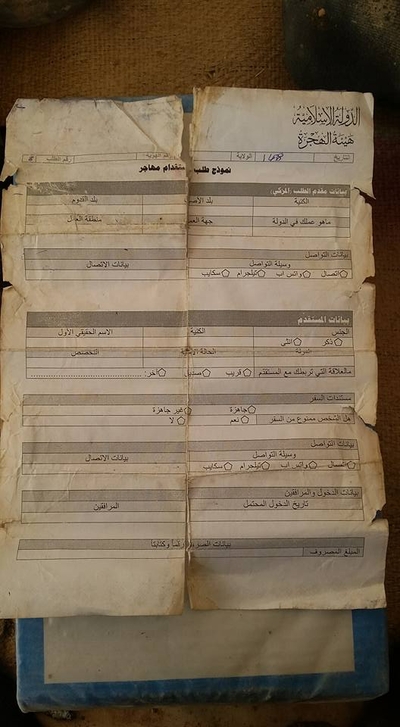 الدولة الإسلامية
هيئة الهجرة
التاريخ الولاية رقم الهوية: رقم الطلب
نموذج طلب إستقدام مهاجر
بيانات مقدم الطلب (المزكي):
الكنية بلد الأصل بلد القدوم
ماهو عملك في الدولة جهة العمل منطقة العمل
بيانات التواصل
وسيلة التواصل بيانات الاتصال
اتصال واتس اب تيلجرام سكايب
بيانات المستقدم
الجنس الكنية الاسم الحقيقي الأول
ذكر انثى
الدولة الحالة التخصص
مالعلاقة التي تربطك مع المستقدم قريب صديق آخر:
مستندات السفر
جاهزة غير جاهزة
هل الشخص ممنوع من السفر نعم لا
بيانات التواصل
وسيلة التواصل بيانات الاتصال
اتصال واتس اب تيلجرام سكايب
بيانات الدخول والمرافقين
تاريخ الدخول المحتمل المرافقين
بيانات رقماً وكتابتا
المبلغ المصروف